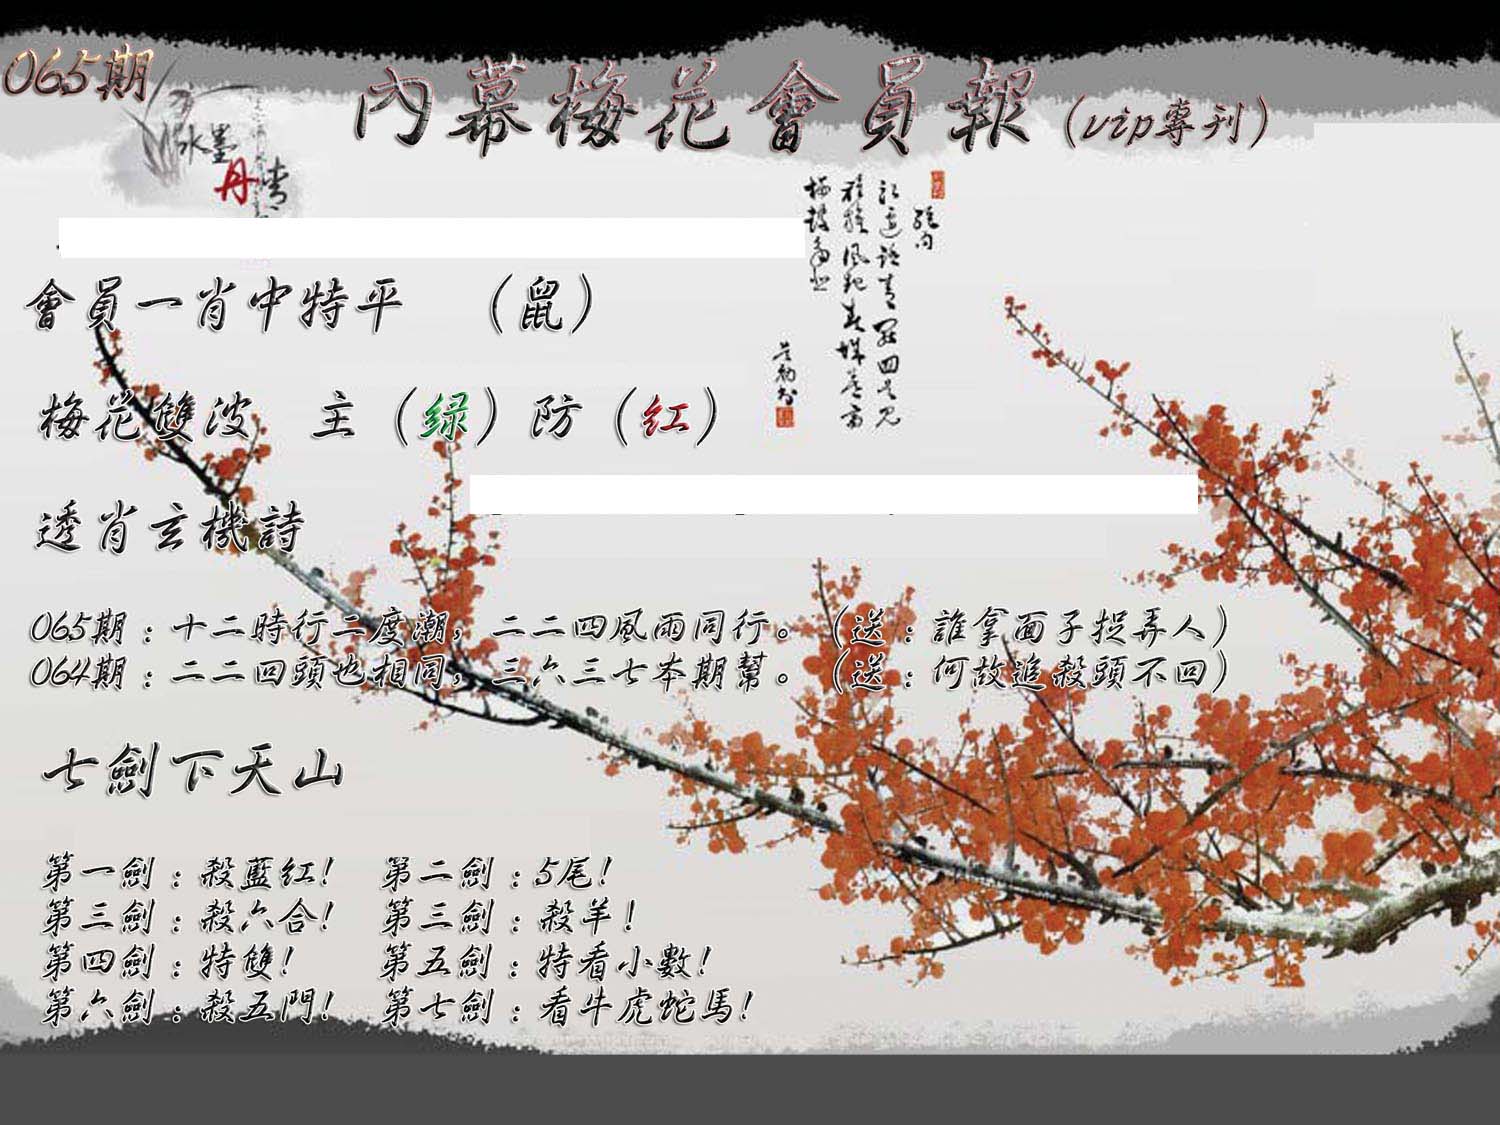 065期
內幕梅花會員報(vip專刊)
水墨
丹青
會員一肖中特平 (鼠)
梅花雙波 主(绿)防(红)
透肖玄機詩
065期:十二時行二度潮,二二四風雨同行。(送:誰拿面子捉弄人)
064期:二二四頭也相同,三六三七本期幫。(送:何故追殺頭不回)
七劍下天山
第一劍:殺藍红! 第二劍:5尾!
第三劍:殺六合! 第三劍:殺羊!
第四劍:特雙! 第五劍:特看小數!
第六劍:殺五門! 第七劍:看牛虎蛇馬!